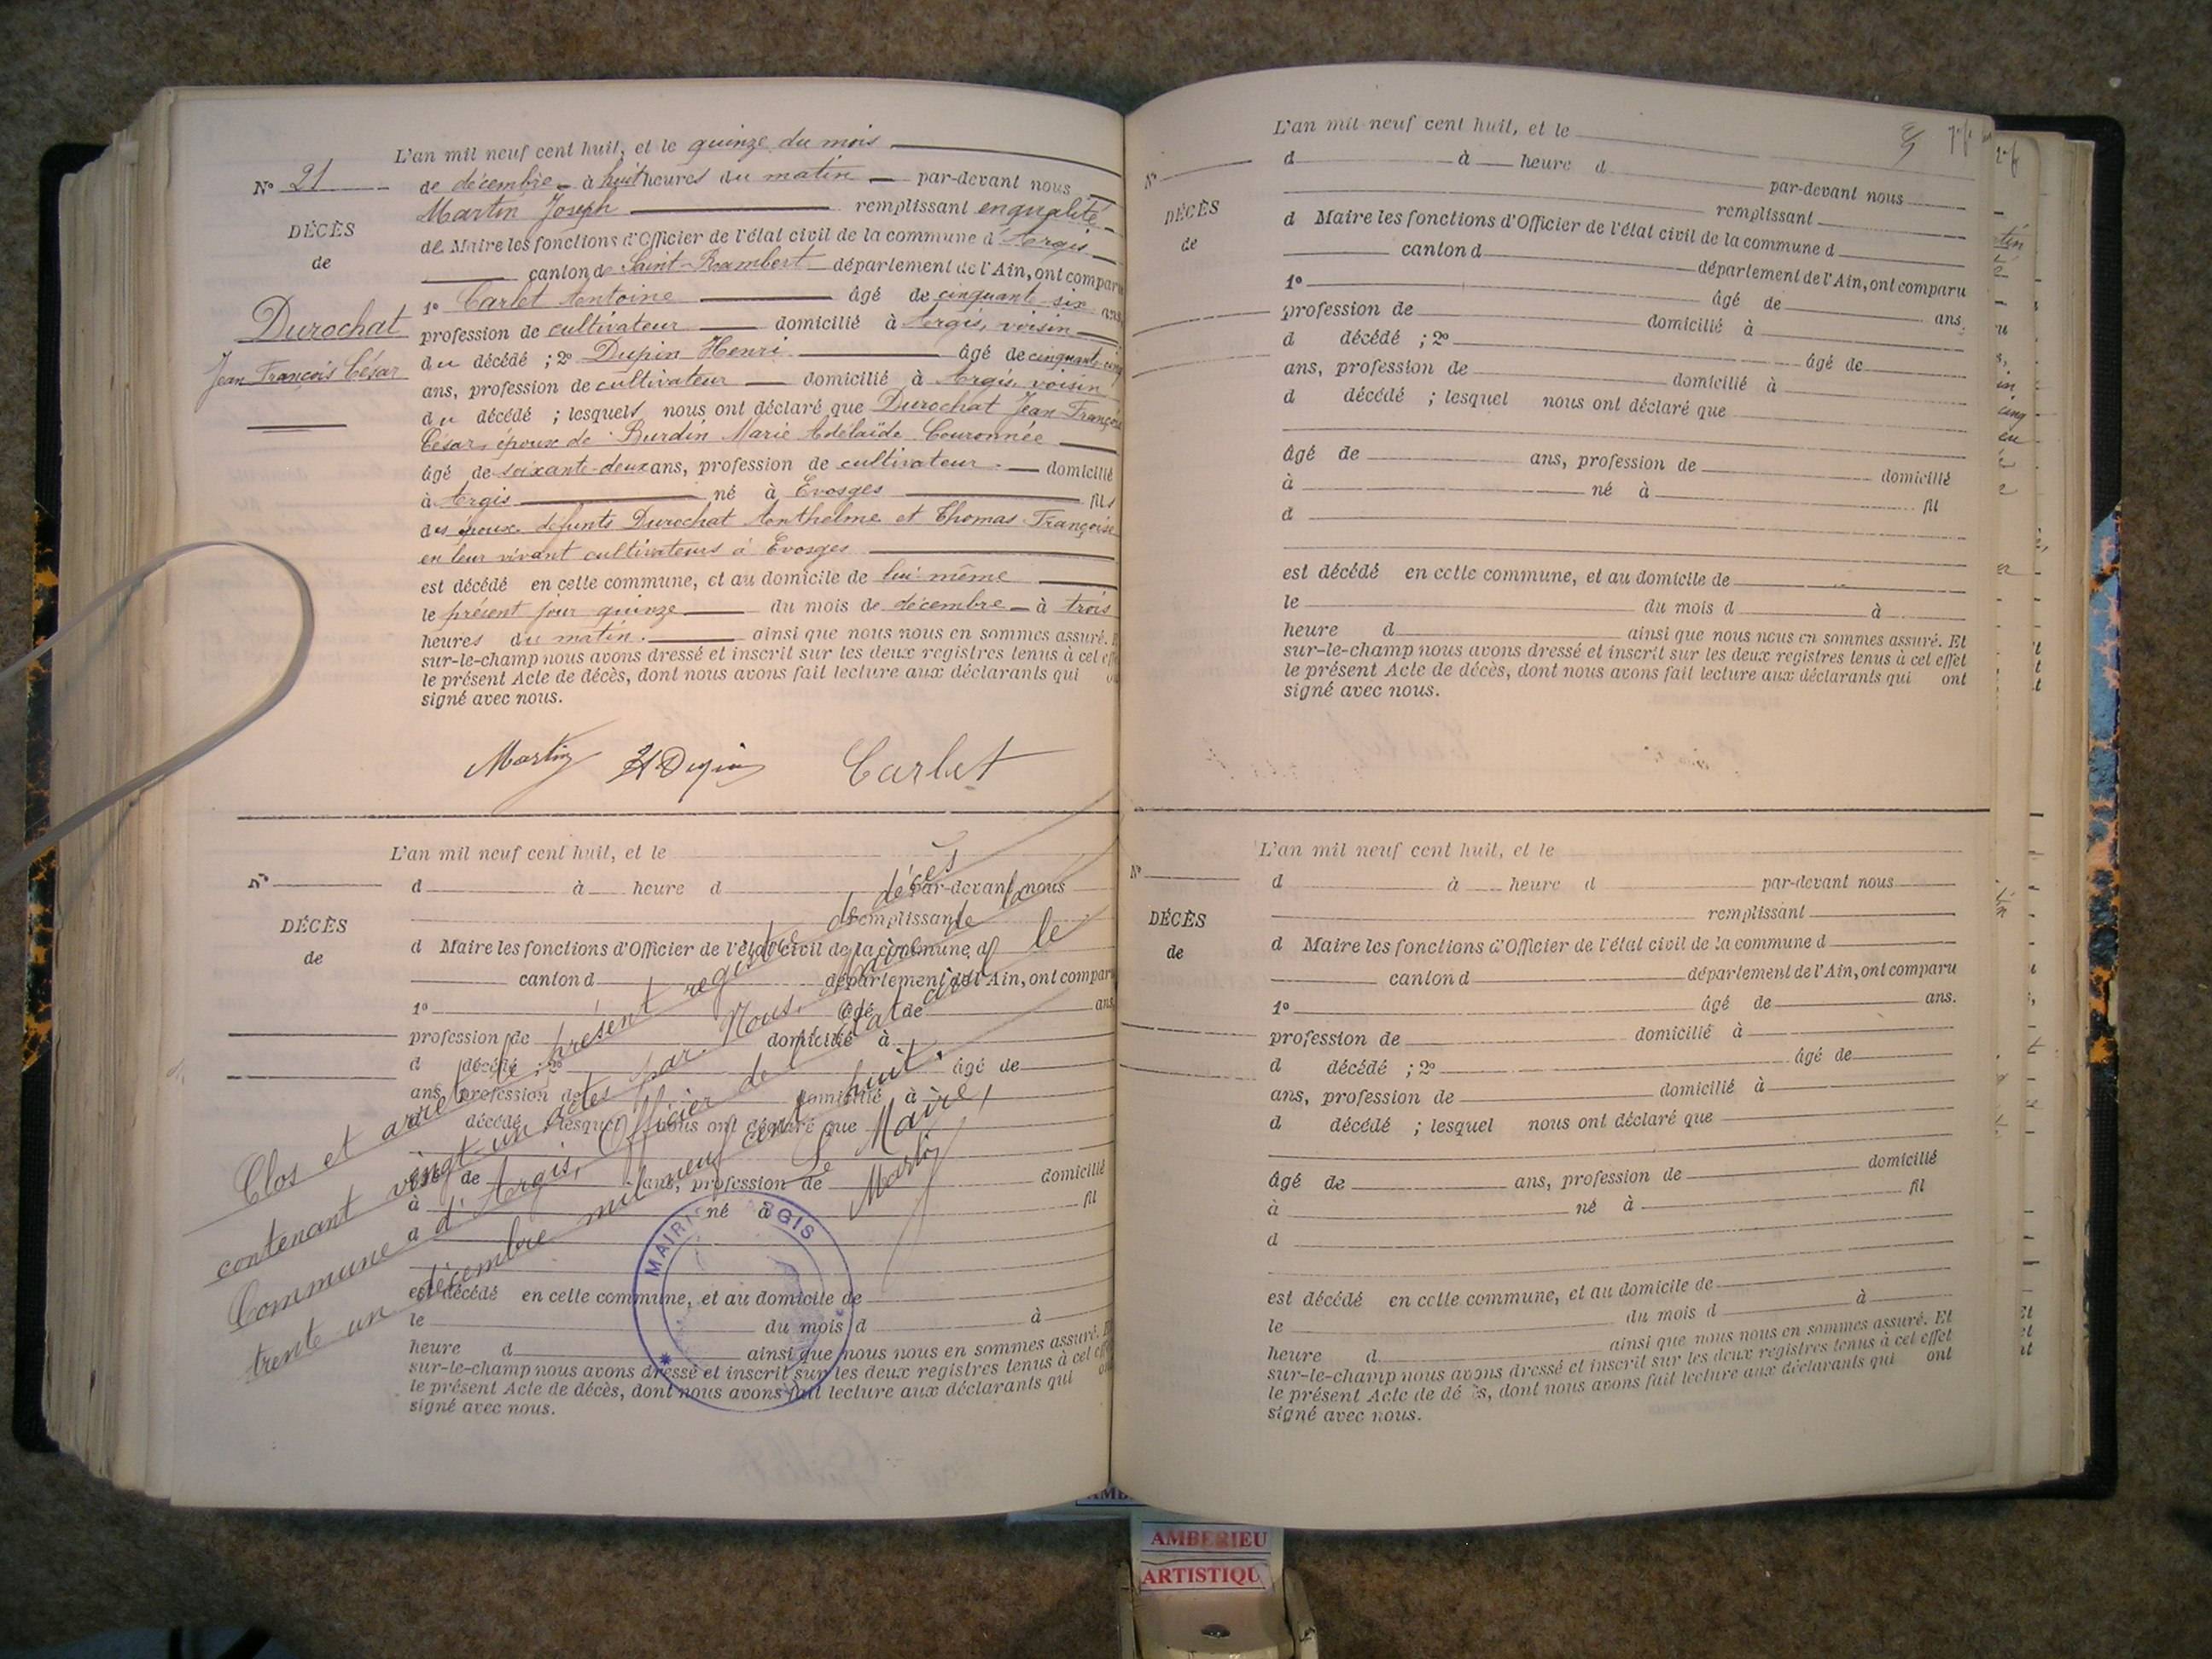 L'an mil neuf cent huit, et le quinze du mois
N° 21
de décembre à huit heures du matin par-devant nous
Martin Joseph remplissant en qualité
DÉCÈS
de Maire les fonctions d'Officier de l'état civil de la commune d'Argis
de
canton de Saint-Rambert département de l'Ain, ont comparu
1° Carlet Antoine âgé de cinquante-six ans,
Durochat
profession de cultivateur domicilié à Argis, voisin
Jean François César
du décédé ; 2° Dupin Henri âgé de cinquante-cinq
ans, profession de cultivateur domicilié à Argis, voisin
du décédé ; lesquels nous ont déclaré que Durochat Jean François
César, époux de Burdin Marie Adélaïde Couronnée
âgé de soixante-deux ans, profession de cultivateur domicilié
à Argis né à Evosges fils
des époux défunts Durochat Anthelme et Thomas Françoise
en leur vivant cultivateurs à Evosges
est décédé en cette commune, et au domicile de lui-même
le présent jour quinze du mois de décembre à trois
heures du matin. ainsi que nous nous en sommes assuré.
sur-le-champ nous avons dressé et inscrit sur les deux registres tenus à cet effet
le présent Acte de décès, dont nous avons fait lecture aux déclarants qui
signé avec nous.
Martin H Dupin Carlet
L'an mil neuf cent huit, et le
N°
d à heure d par-devant nous
remplissant
DÉCÈS
d Maire les fonctions d'Officier de l'état civil de la commune d
de
canton d département de l'Ain, ont comparu
1° âgé de ans
profession de domicilié à
d décédé ; 2° âgé de
ans, profession de domicilié à
décédé lesquel nous ont déclaré que
âgé de ans, profession de domicilié
à né à fil
d
est décédé en cette commune, et au domicile de
le du mois d à
heure d ainsi que nous nous en sommes assuré.
sur-le-champ nous avons dressé et inscrit sur les deux registres tenus à cet effet
le présent Acte de décès, dont nous avons fait lecture aux déclarants qui
signé avec nous.
Clos et arrêté le présent registre de décès
contenant vingt-un actes par Nous, Maire de la
Commune d'Argis, Officier de l'état civil le
trente un décembre mil neuf cent huit.
Le Maire,
Martin
MAIRIE ARGIS
L'an mil neuf cent huit, et le
N°
d à heure d par-devant nous
remplissant
DÉCÈS
d Maire les fonctions d'Officier de l'état civil de la commune d
de
canton d département de l'Ain, ont comparu
1° âgé de ans.
profession de domicilié à
d décédé ; 2° âgé de
ans, profession de domicilié à
d décédé ; lesquel nous ont déclaré que
âgé de ans, profession de domicilié
à né à fil
d
est décédé en cette commune, et au domicile de
le du mois d à
heure d ainsi que nous nous en sommes assuré. Et
sur-le-champ nous avons dressé et inscrit sur les deux registres tenus à cet effet
le présent Acte de décès, dont nous avons fait lecture aux déclarants qui ont
signé avec nous.
L'an mil neuf cent huit, et le
N°
d à heure d par-devant nous
remplissant
DÉCÈS
d Maire les fonctions d'Officier de l'état civil de la commune d
de
canton d département de l'Ain, ont comparu
1° âgé de ans.
profession de domicilié à
d décédé ; 2° âgé de
ans, profession de domicilié à
d décédé ; lesquel nous ont déclaré que
âgé de ans, profession de domicilié
à né à fil
d
est décédé en cette commune, et au domicile de
le du mois d à
heure d ainsi que nous nous en sommes assuré. Et
sur-le-champ nous avons dressé et inscrit sur les deux registres tenus à cet effet
le présent Acte de décès, dont nous avons fait lecture aux déclarants qui ont
signé avec nous.
AMBERIEU
ARTISTIQU